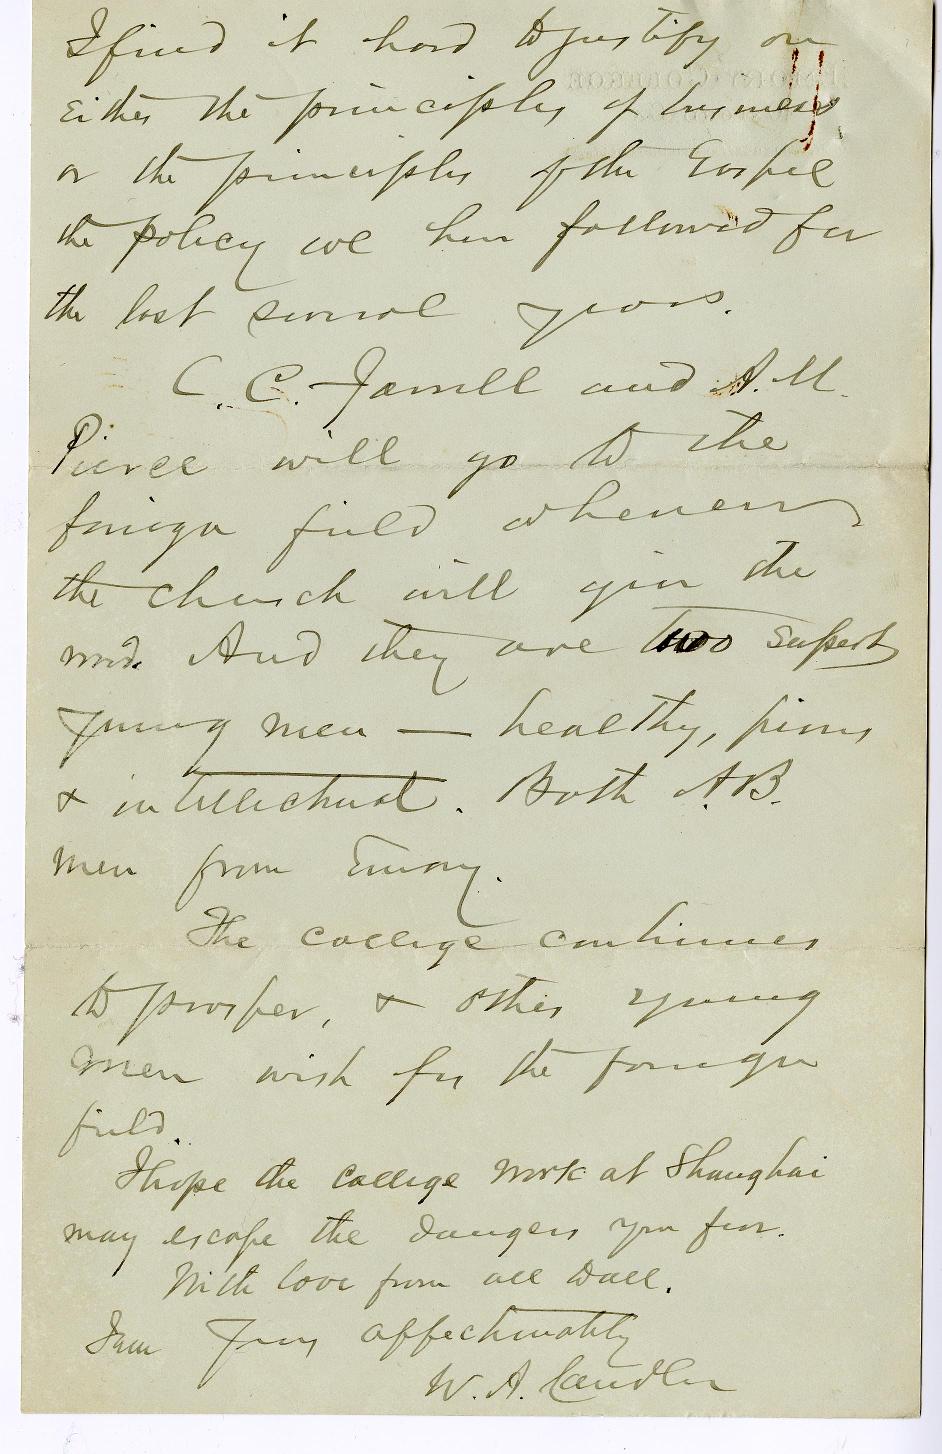 I find it hard to justify on
either the principles of business
or the principles of the Gospel
the policy we have followed for
the last several years.
C. C. Jarrell and A. M.
Pierce will go to the
foreign field whenever
the church will give the
word. And they are two superb
young men — healthy, pious
& intellectual. Both A.B.
men from Emory.
The college continues
to prosper, & other young
men wish for the foreign
field.
I hope the college work at Shanghai
may escape the dangers you fear.
With love from all to all.
I am Yours affectionately
W. A. Candler